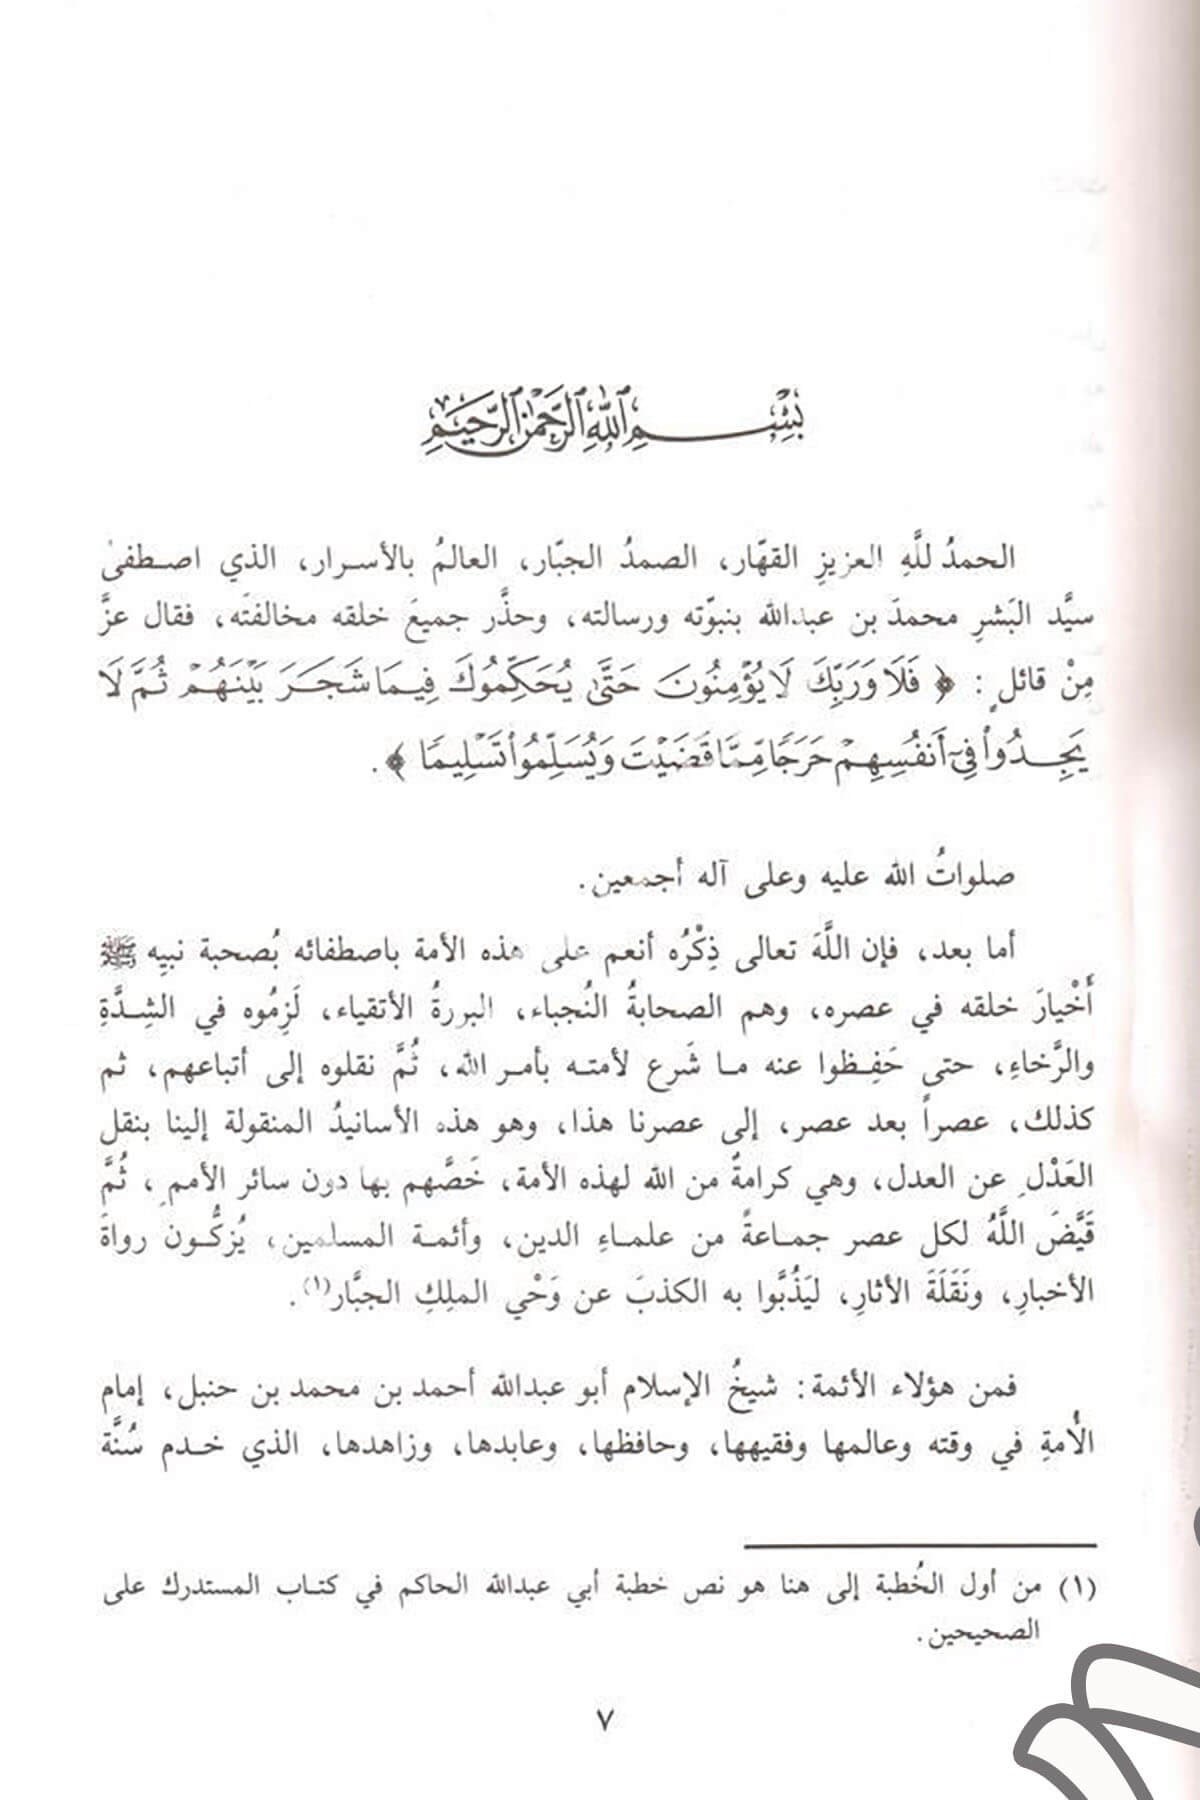 بِسْمِ ٱللَّهِ ٱلرَّحْمَٰنِ ٱلرَّحِيمِ
الحمدُ للَّهِ العزيزِ القهّار، الصمدُ الجبّار، العالمُ بالأسرار، الذي اصطفىٰ
سيَّد البَشرِ محمدَ بن عبدالله بنبوّته ورسالته، وحذَّر جميعَ خلقه مخالفتَه، فقال عزَّ
مِنْ قائلٍ: ﴿ فَلَا وَرَبِّكَ لَا يُؤْمِنُونَ حَتَّىٰ يُحَكِّمُوكَ فِيمَا شَجَرَ بَيْنَهُمْ ثُمَّ لَا
يَجِدُوا۟ فِىٓ أَنفُسِهِمْ حَرَجًا مِّمَّا قَضَيْتَ وَيُسَلِّمُوا۟ تَسْلِيمًا ﴾.
صلواتُ الله عليه وعلى آله أجمعين.
أما بعد، فإن اللَّهَ تعالى ذِكْرُه أنعم على هذه الأمة باصطفائه بُصحبة نبيِه ﷺ
أَخْيارَ خلقه في عصره، وهم الصحابةُ النُجباء، البررةُ الأتقياء، لَزِمُوه في الشِدَّةِ
والرَّخاءِ، حتى حَفِظوا عنه ما شَرع لأمته بأمر الله، ثُمَّ نقلوه إلى أتباعهم، ثم
كذلك، عصراً بعد عصر، إلى عصرنا هذا، وهو هذه الأسانيدُ المنقولة إلينا بنقل
العَدْلِ عن العدل، وهي كرامةٌ من الله لهذه الأمة، خَصَّهم بها دون سائر الأممِ، ثُمَّ
قَيَّضَ اللَّهُ لكل عصر جماعةً من علماءِ الدين، وأئمة المسلمين، يُزكُّون رواةَ
الأخبارِ، ونَقَلَةَ الأثارِ، ليَذُبَّوا به الكذبَ عن وَحْي الملِكِ الجبَّار(١).
فمن هؤلاء الأئمة: شيخُ الإسلام أبو عبدالله أحمد بن محمد بن حنبل، إمام
الأُمةِ في وقته وعالمها وفقيهها، وحافظها، وعابدها، وزاهدها، الذي خدم سُنَّة
(١) من أول الخُطبة إلى هنا هو نص خطبة أبي عبدالله الحاكم في كتاب المستدرك على
الصحيحين.
٧